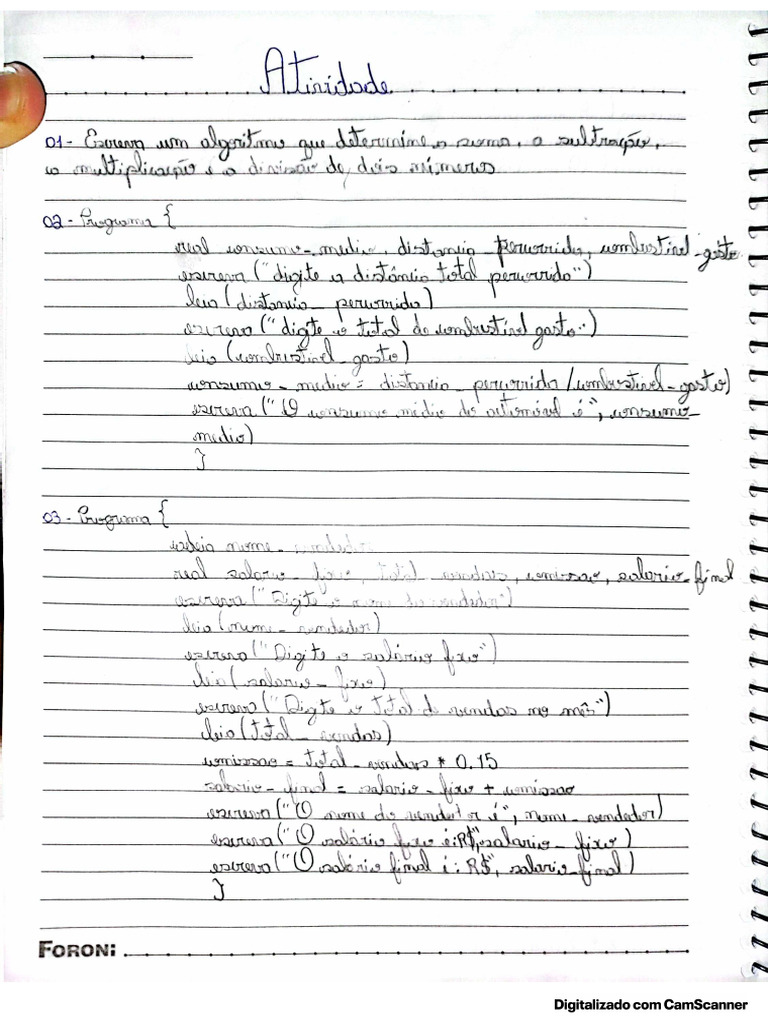 Atividade
01- Escreva um algoritmo que determine a soma, a subtração,
a multiplicação e a divisão de dois números
02- Programa {
real consumo_medio, distancia_percorrida, combustivel_gasto
escreva ("digite a distância total percorrida")
leia (distancia_percorrida)
escreva ("digite o total de combustível gasto")
leia (combustivel_gasto)
consumo_medio = distancia_percorrida / combustivel_gasto)
escreva ("O consumo médio do automóvel é", consumo_
medio)
}
03- Programa {
cadeia nome_
real salario_fixo, total_vendas, comissao, salario_final
escreva ("Digite o nome do vendedor")
leia (nome_vendedor)
escreva ("Digite o salário fixo")
leia (salario_fixo)
escreva ("Digite o total de vendas no mês")
leia (total_vendas)
comissao = total_vendas * 0.15
salario_final = salario_fixo + comissao
escreva ("O nome do vendedor é", nome_vendedor)
escreva ("O salário fixo é: R$", salario_fixo)
escreva ("O salário final é: R$", salario_final)
}
FORONI
Digitalizado com CamScanner